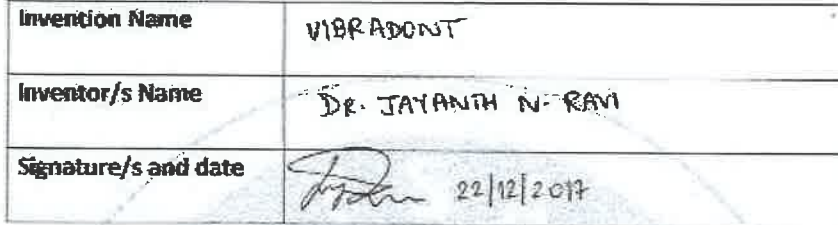 Invention Name VIBRADONT
Inventor/s Name DR. JAYANTH N. RAVI
Signature/s and date 22/12/2017